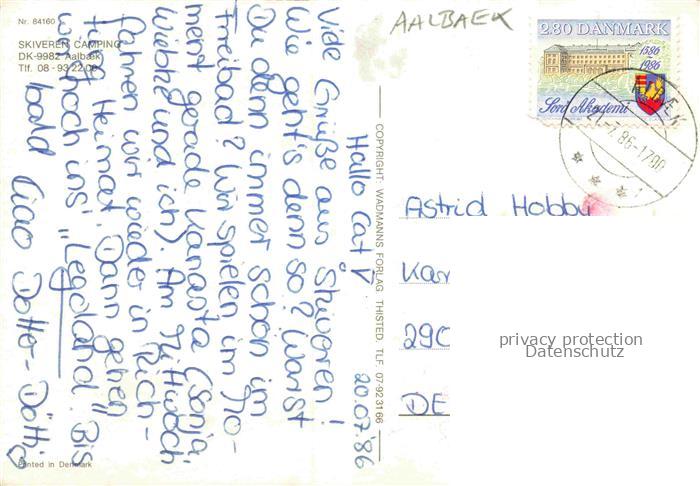 Nr. 84160
SKIVEREN CAMPING
DK-9982 Aalbæk
Tlf. 08 - 93 22 00
AALBAEK
2.80 DANMARK
1586
1986
Sorø Akademi
7.86-17 00
Hallo Cat V
20.07.'86
Viele Grüße aus Skiveren!
Wie geht's denn so? Warst
Du denn immer schön im
Freibad? Wir spielen im Mo-
ment gerade Kanasta (Sonja,
Wiebke und ich). Am Mittwoch
fahren wir wieder in Rich-
tung Heimat. Dann gehen
wir noch ins "Legoland". Bis
bald Ciao Dotte-Dötti
COPYRIGHT: WADMANNS FORLAG THISTED. TLF. 07-92 31 66
Astrid Hobby
Kar
290
DE
privacy protection
Datenschutz
Printed in Denmark